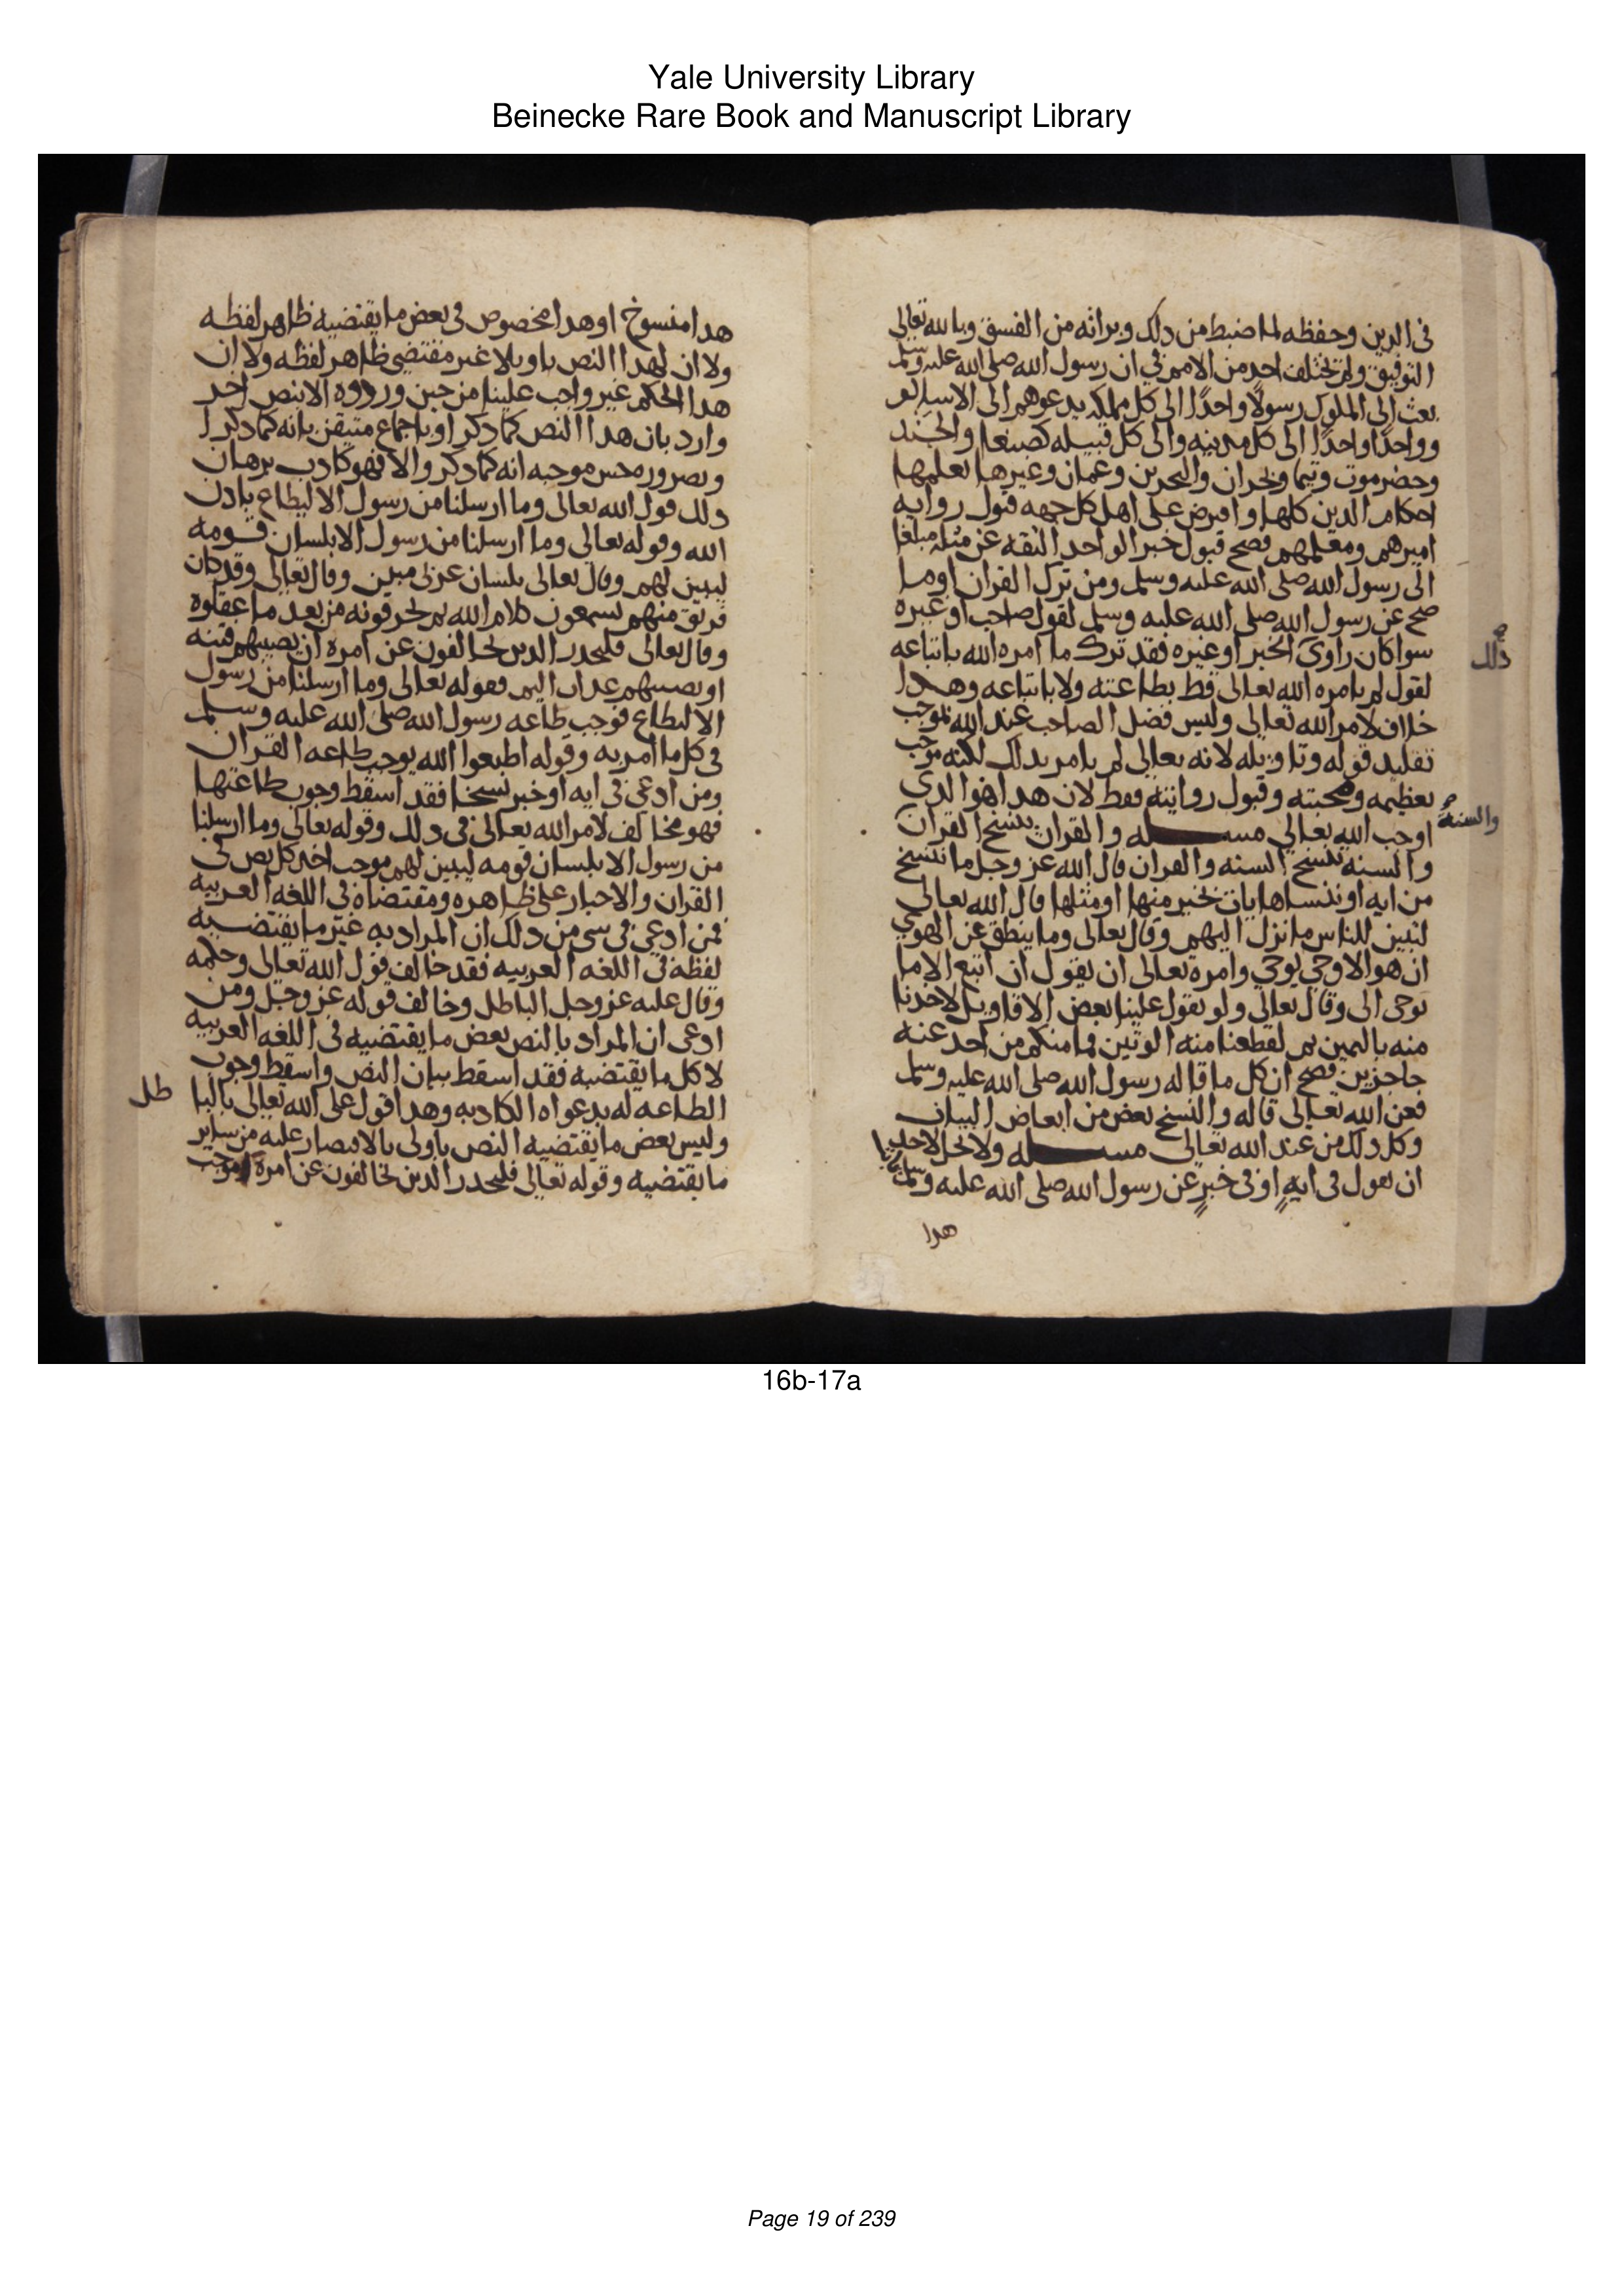 Yale University Library
Beinecke Rare Book and Manuscript Library
فى الدين وحفظه لما ضبط من دلك وبراته من الفسق وبالله تعالى
التوفيق ولم تختلف احد من الامم فى ان رسول الله صلى الله عليه وسلم
بعث الى الملوك رسولًا واحدًا الى كل مملكه يدعوهم الى الاسلام
وواحدًا واحدًا الى كل مدينه والى كل قبيله كصنعا والجند
وحضرموت وتيما ونجران والبحرين وعمان وغيرها يعلمها
احكام الدين كلها وافترض على اهل كل جهه قبول روايه
اميرهم ومعلمهم فصح قبول خبر الواحد الثقه عن مثله مبلغا
الى رسول الله صلى الله عليه وسلم ومن ترك القران اوما
صح عن رسول الله صلى الله عليه وسلم لقول صاحب او غيره
سوا كان راوى الخبر او غيره فقد ترك ما امره الله باتباعه
ذلك
لقول لم يامره الله تعالى قط بطاعته ولا باتباعه وهدا
خلاف لامر الله تعالى وليس فضل الصاحب عند الله بموجب
تقليد قوله وتاويله لانه تعالى لم يامر بدلك لكنه موجب
تعظيمه ومحبته وقبول روايته فقط لان هدا هو الدى
اوجب الله تعالى مسـله والقران ينسخ القران
والسنه
والسنه تنسخ السنه والقران قال الله عز وجل ما ننسخ
من ايه او ننساها نات بخير منها او مثلها قال الله تعالى
لتبين للناس ما نزل اليهم وقال تعالى وما ينطق عن الهوى
ان هو الا وحى يوحى وامره تعالى ان يقول ان اتبع الا ما
يوحى الى وقال تعالى ولو تقول علينا بعض الاقاويل لاخدنا
منه باليمين ثم لقطعنا منه الوتين فما منكم من احد عنه
حاجزين فصح ان كل ما قاله رسول الله صلى الله عليه وسلم
فعن الله تعالى قاله والنسخ بعض من ابعاض البيان
وكل دلك من عند الله تعالى مسـله ولا يحل لاحد
ان يقول فى ايه او فى خبر عن رسول الله صلى الله عليه وسلم
هدا
هدا منسوخ او هدا مخصوص فى بعض ما يقتضيه ظاهر لفظه
ولا ان لهدا النص تاويلا غير مقتضى ظاهر لفظه ولا ان
هدا الحكم غير واجب علينا من حين وروده الا بنص اخر
وارد بان هدا النص كما دكر او باجماع متيقن بانه كما دكر
او بضروره حس موجبه انه كما دكر والا فهو كادب برهان
دلك قول الله تعالى وما ارسلنا من رسول الا ليطاع بادن
الله وقوله تعالى وما ارسلنا من رسول الا بلسان قومه
ليبين لهم وقال تعالى بلسان عربى مبين وقال تعالى وقد كان
فريق منهم يسمعون كلام الله ثم يحرفونه من بعد ما عقلوه
وقال تعالى فليحدر الدين يخالفون عن امره ان تصيبهم فتنه
او يصيبهم عداب اليم فقوله تعالى وما ارسلنا من رسول
الا ليطاع فوجب طاعه رسول الله صلى الله عليه وسلم
فى كل ما امر به وقوله اطيعوا الله يوجب طاعه القران
ومن ادعى فى ايه او خبر نسخا فقد اسقط وجوب طاعتها
فهو مخالف لامر الله تعالى فى دلك وقوله تعالى وما ارسلنا
من رسول الا بلسان قومه ليبين لهم موجب اخد كل نص فى
القران والاخبار على ظاهره ومقتضاه فى اللغه العربيه
فمن ادعى فى شى من دلك ان المراد به غير ما يقتضيه
لفظه فى اللغه العربيه فقد خالف قول الله تعالى وحكمه
وقال عليه عز وجل الباطل وخالف قوله عز وجل ومن
ادعى ان المراد بالنص بعض ما يقتضيه فى اللغه العربيه
لا كل ما يقتضيه فقد اسقط بيان النص واسقط وجوب
الطاعه له بدعواه الكادبه وهدا قول على الله تعالى بالبا
طل
وليس بعض ما يقتضيه النص باولى بالاقتصار عليه من ساير
ما يقتضيه وقوله تعالى فليحدر الدين يخالفون عن امره موجب
16b-17a
Page 19 of 239